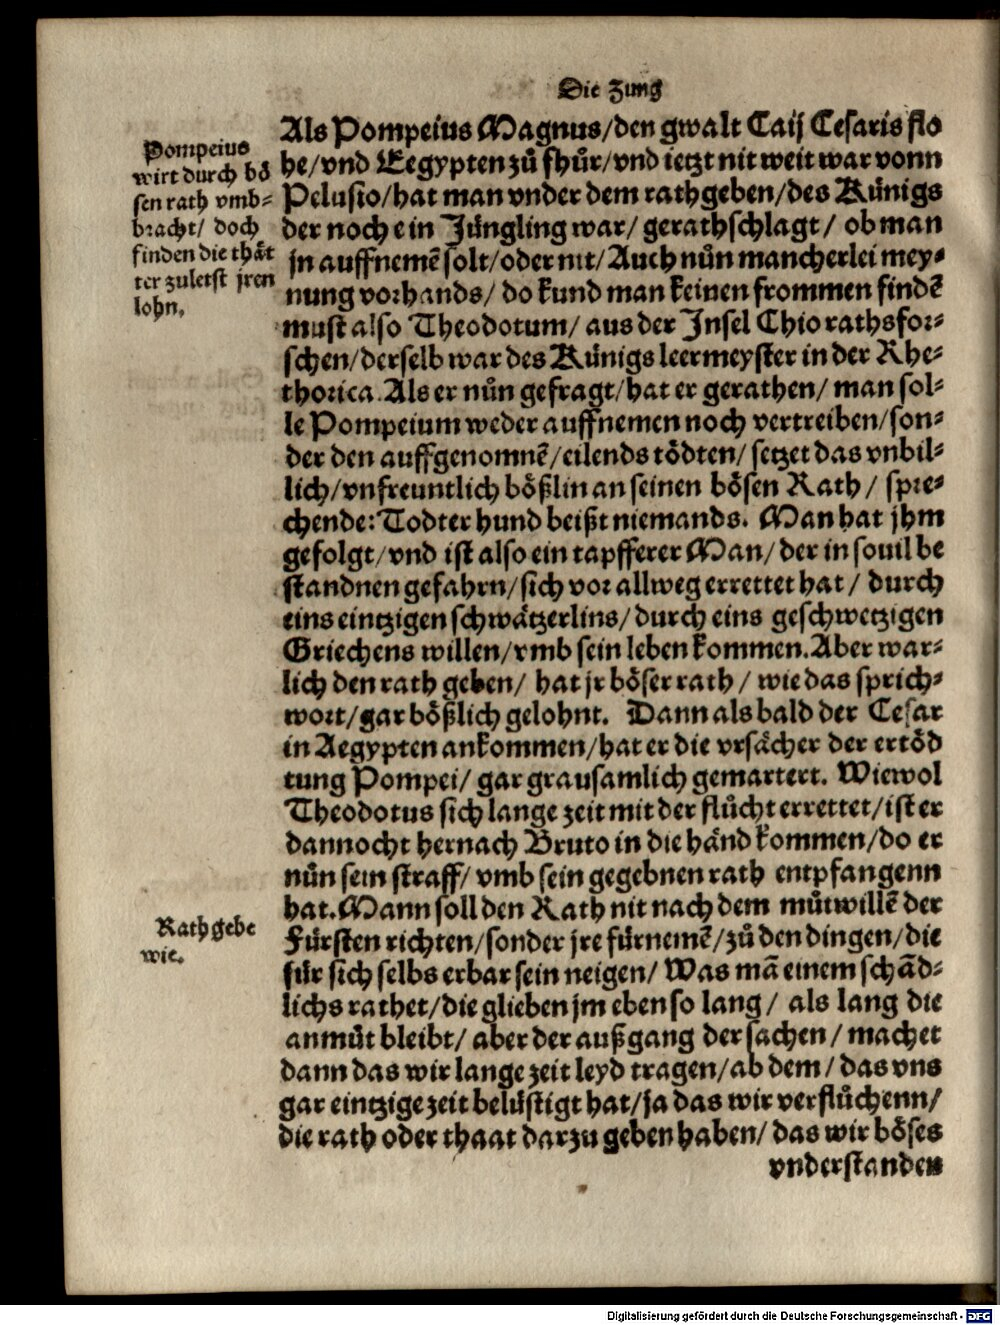 Die Zung
Pompeius
wirt durch bö
sen rath vmb-
bracht/ doch
finden die thät
ter zuletst jren
lohn.
Als Pompeius Magnus/den gwalt Caij Cesaris flo
he/vnd Eegypten zů fhůr/vnd ietzt nit weit war vonn
Pelusio/hat man vnder dem rathgeben/des Künigs
der noch ein Jüngling war/ gerathschlagt/ ob man
jn auffnemē solt/oder nit/Auch nůn mancherlei mey-
nung vorhands/ do kund man keinen frommen findē
must also Theodotum/ aus der Insel Chio rathsfor-
schen/derselb war des Künigs leermeyster in der Rhe-
thorica. Als er nůn gefragt/hat er gerathen/ man sol-
le Pompeium weder auffnemen noch vertreiben/son-
der den auffgenomnē/eilends tödten/ setzet das vnbil-
lich/vnfreuntlich bößlin an seinen bösen Rath/ spre-
chende: Todter hund beißt niemands. Man hat jhm
gefolgt/vnd ist also ein tapfferer Man/der in souil be
standnen gefahrn/sich vor allweg errettet hat/ durch
eins eintzigen schwätzerlins/durch eins geschwetzigen
Griechens willen/vmb sein leben kommen. Aber war-
lich den rath geben/ hat jr böser rath/ wie das sprich-
wort/gar bößlich gelohnt. Dann als bald der Cesar
in Aegypten ankommen/hat er die vrsächer der ertöd
tung Pompei/ gar grausamlich gemartert. Wiewol
Theodotus sich lange zeit mit der flůcht errettet/ist er
dannocht hernach Bruto in die händ kommen/do er
nůn sein straff/ vmb sein gegebnen rath entpfangenn
hat. Mann soll den Rath nit nach dem můtwillē der
Fürsten richten/sonder jre fürnemē/zů den dingen/die
für sich selbs erbar sein neigen/ Was mā einem schād-
lichs rathet/die glieben jm eben so lang/ als lang die
anmůt bleibt/ aber der außgang der sachen/ machet
dann das wir lange zeit leyd tragen/ab dem/ das vns
gar eintzige zeit belüstigt hat/ja das wir verflůchenn/
die rath oder thaat darzu geben haben/ das wir böses
vnderstanden
Rathgebe
wie.
Digitalisierung gefördert durch die Deutsche Forschungsgemeinschaft - DFG